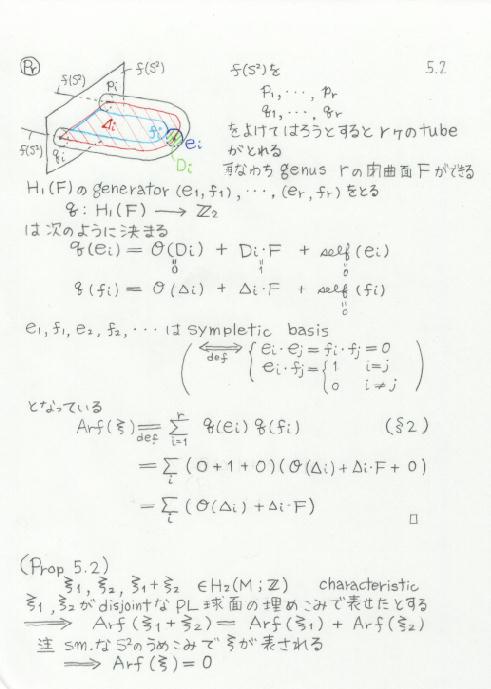 Pr
f(S²)
f(S²)
f(S²)
pi
qi
Δi
fi
ei
Di
f(S²)を 5.2
p₁, ⋯, pr
q₁, ⋯, qr
をよけてはろうとするとrケのtube
がとれる
すなわち genus rの閉曲面Fができる
H₁(F)のgenerator (e₁, f₁), ⋯, (er, fr)をとる
q : H₁(F) → ℤ₂
は次のように決まる
q(ei) = O(Di) + Di·F + self(ei)
0 1 0
q(fi) = O(Δi) + Δi·F + self(fi)
0
e₁, f₁, e₂, f₂, ⋯ は sympletic basis
( ⟺ def { ei·ej = fi·fj = 0
ei·fj = { 1 i=j
0 i≠j )
となっている
Arf(ξ) =def Σ_{i=1}^{r} q(ei) q(fi) (§2)
= Σ_i (0+1+0)(O(Δi)+Δi·F+0)
= Σ_i (O(Δi)+Δi·F)
□
(Prop 5.2)
ξ₁, ξ₂, ξ₁+ξ₂ ∈H₂(M;ℤ) characteristic
ξ₁, ξ₂がdisjointなPL球面の埋めこみで表せたとする
⟹ Arf(ξ₁+ξ₂) = Arf(ξ₁) + Arf(ξ₂)
注 sm.なS²のうめこみでξが表される
⟹ Arf(ξ) = 0